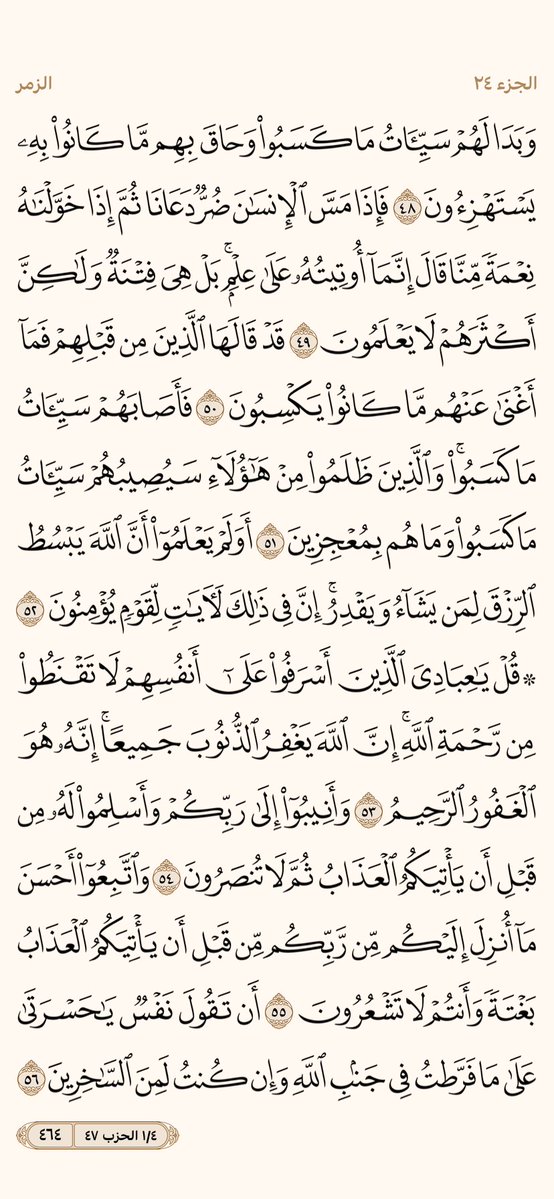 الجزء ٢٤
الزمر
وَبَدَا لَهُمْ سَيِّـَٔاتُ مَا كَسَبُوا۟ وَحَاقَ بِهِم مَّا كَانُوا۟ بِهِۦ
يَسْتَهْزِءُونَ ٤٨ فَإِذَا مَسَّ ٱلْإِنسَـٰنَ ضُرٌّ دَعَانَا ثُمَّ إِذَا خَوَّلْنَـٰهُ
نِعْمَةً مِّنَّا قَالَ إِنَّمَآ أُوتِيتُهُۥ عَلَىٰ عِلْمٍۭ ۚ بَلْ هِىَ فِتْنَةٌ وَلَـٰكِنَّ
أَكْثَرَهُمْ لَا يَعْلَمُونَ ٤٩ قَدْ قَالَهَا ٱلَّذِينَ مِن قَبْلِهِمْ فَمَآ
أَغْنَىٰ عَنْهُم مَّا كَانُوا۟ يَكْسِبُونَ ٥٠ فَأَصَابَهُمْ سَيِّـَٔاتُ
مَا كَسَبُوا۟ ۚ وَٱلَّذِينَ ظَلَمُوا۟ مِنْ هَـٰٓؤُلَآءِ سَيُصِيبُهُمْ سَيِّـَٔاتُ
مَا كَسَبُوا۟ وَمَا هُم بِمُعْجِزِينَ ٥١ أَوَلَمْ يَعْلَمُوٓا۟ أَنَّ ٱللَّهَ يَبْسُطُ
ٱلرِّزْقَ لِمَن يَشَآءُ وَيَقْدِرُ ۚ إِنَّ فِى ذَٰلِكَ لَـَٔايَـٰتٍ لِّقَوْمٍ يُؤْمِنُونَ ٥٢
* قُلْ يَـٰعِبَادِىَ ٱلَّذِينَ أَسْرَفُوا۟ عَلَىٰٓ أَنفُسِهِمْ لَا تَقْنَطُوا۟
مِن رَّحْمَةِ ٱللَّهِ ۚ إِنَّ ٱللَّهَ يَغْفِرُ ٱلذُّنُوبَ جَمِيعًا ۚ إِنَّهُۥ هُوَ
ٱلْغَفُورُ ٱلرَّحِيمُ ٥٣ وَأَنِيبُوٓا۟ إِلَىٰ رَبِّكُمْ وَأَسْلِمُوا۟ لَهُۥ مِن
قَبْلِ أَن يَأْتِيَكُمُ ٱلْعَذَابُ ثُمَّ لَا تُنصَرُونَ ٥٤ وَٱتَّبِعُوٓا۟ أَحْسَنَ
مَآ أُنزِلَ إِلَيْكُم مِّن رَّبِّكُم مِّن قَبْلِ أَن يَأْتِيَكُمُ ٱلْعَذَابُ
بَغْتَةً وَأَنتُمْ لَا تَشْعُرُونَ ٥٥ أَن تَقُولَ نَفْسٌ يَـٰحَسْرَتَىٰ
عَلَىٰ مَا فَرَّطتُ فِى جَنۢبِ ٱللَّهِ وَإِن كُنتُ لَمِنَ ٱلسَّـٰخِرِينَ ٥٦
١/٤ الحزب ٤٧
٤٦٤